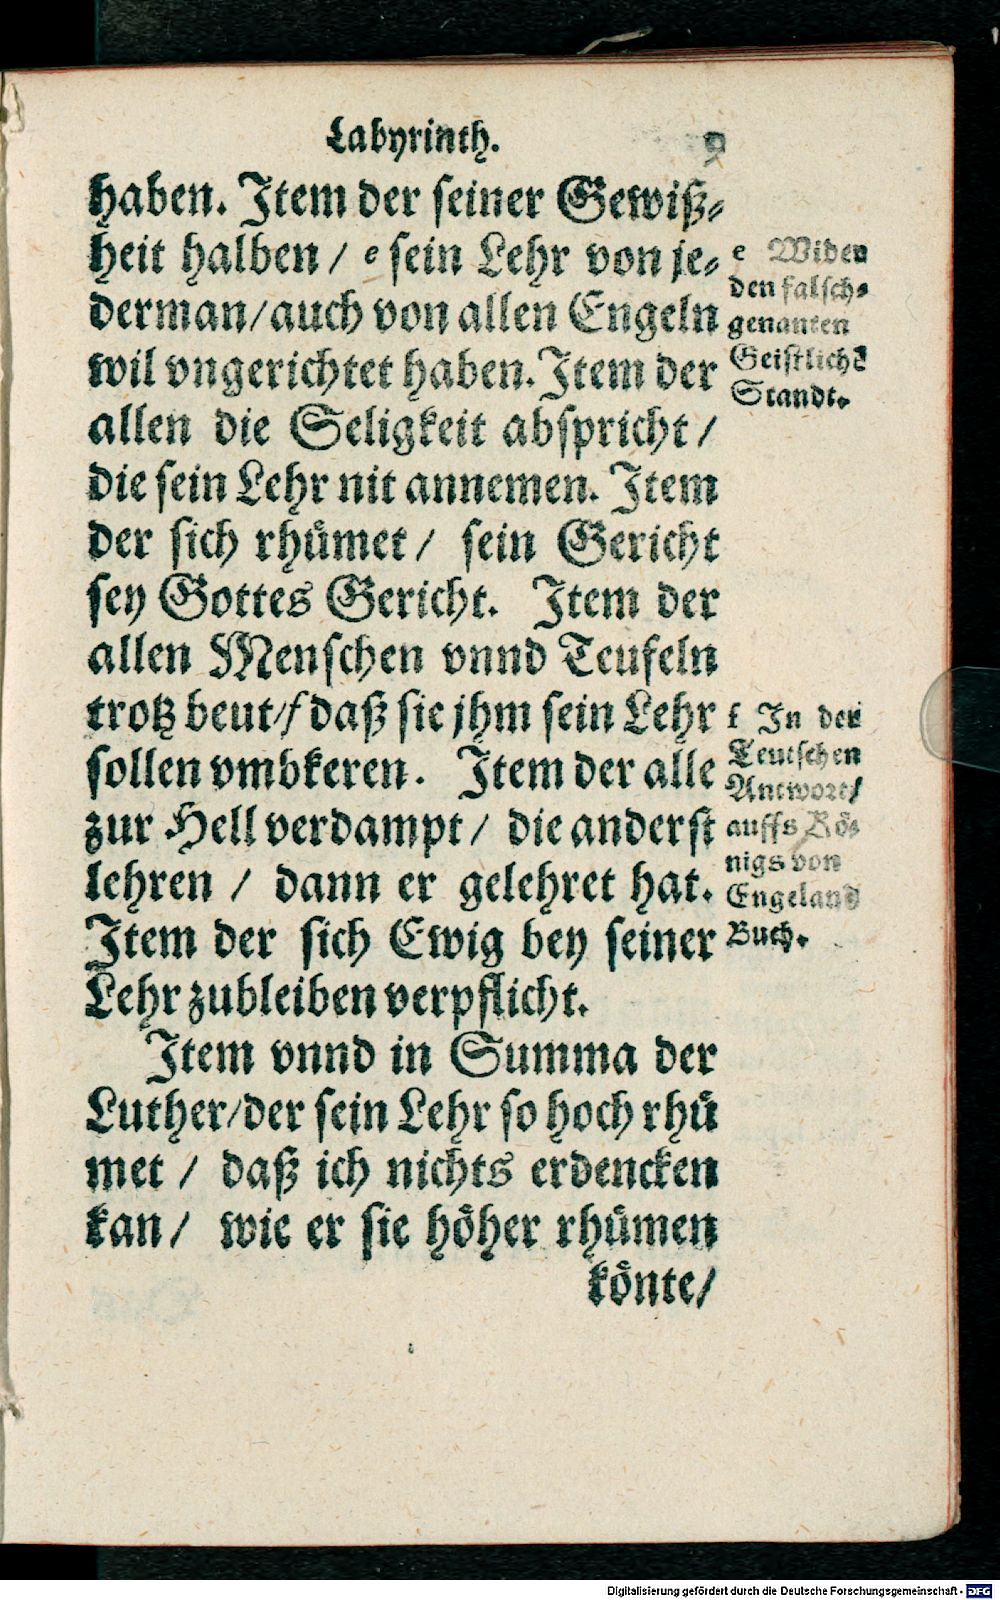 Labyrinth. 9
haben. Item der seiner Gewiß⸗
heit halben / e sein Lehr von je⸗
derman/auch von allen Engeln
wil vngerichtet haben. Item der
allen die Seligkeit abspricht /
die sein Lehr nit annemen. Item
der sich rhůmet / sein Gericht
sey Gottes Gericht. Item der
allen Menschen vnnd Teufeln
trotz beut/f daß sie jhm sein Lehr
sollen vmbkeren. Item der alle
zur Hell verdampt / die anderst
lehren / dann er gelehret hat.
Item der sich Ewig bey seiner
Lehr zubleiben verpflicht.
Item vnnd in Summa der
Luther/der sein Lehr so hoch rhů
met / daß ich nichts erdencken
kan / wie er sie hoͤher rhuͤmen
koͤnte/
e Widen
den falsch⸗
genanten
Geistlichẽ
Standt.
f In der
Teutschen
Antwort/
auffs Koͤ⸗
nigs von
Engeland
Buch.
Digitalisierung gefördert durch die Deutsche Forschungsgemeinschaft - DFG